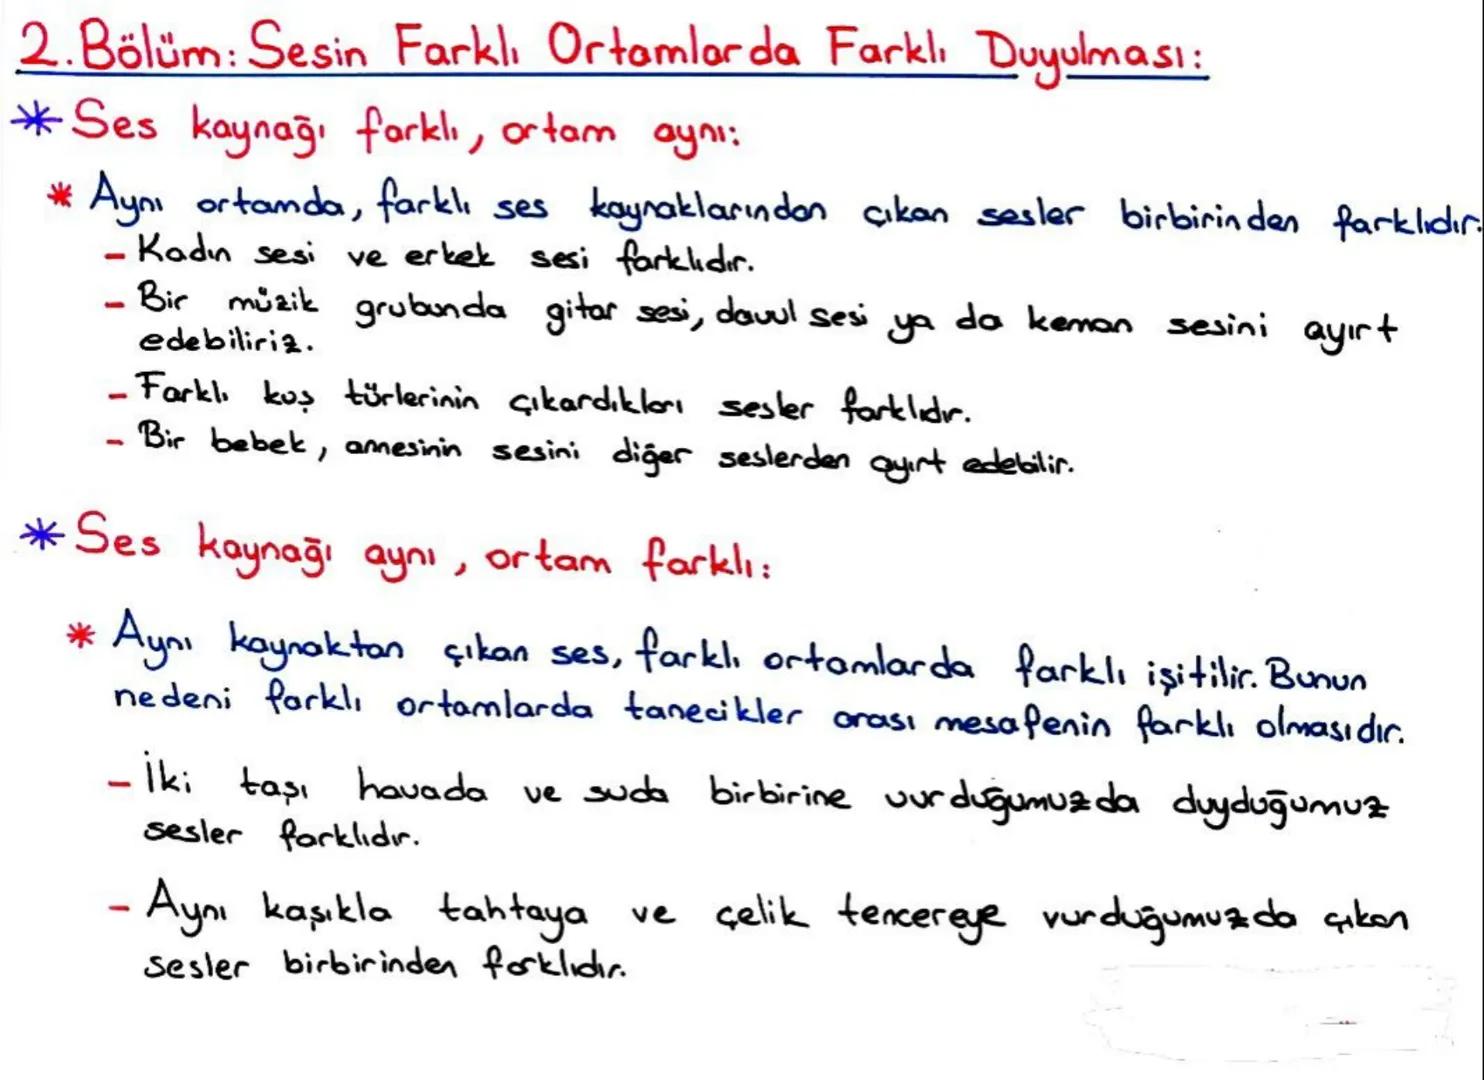 2.Bölüm: Sesin Farklı Ortamlarda Farklı Duyulması:
* Ses kaynağı farklı, ortam aynı:
* Aynı ortamda, farklı ses kaynaklarından çıkan sesler birbirinden farklıdır.
- Kadın sesi ve erkek sesi farklıdır.
- Bir müzik grubunda gitar sesi, davul sesi ya da keman sesini ayırt
edebiliriz.
- Farklı kuş türlerinin çıkardıkları sesler farklıdır.
- Bir bebek, annesinin sesini diğer seslerden ayırt edebilir.
* Ses kaynağı aynı, ortam farklı:
* Aynı kaynaktan çıkan ses, farklı ortamlarda farklı işitilir. Bunun
nedeni farklı ortamlarda tanecikler arası mesafenin farklı olmasıdır.
- İki taşı havada ve suda birbirine vurduğumuzda duyduğumuz
sesler farklıdır.
- Aynı kaşıkla tahtaya ve çelik tencereye vurduğumuzda çıkan
sesler birbirinden farklıdır.